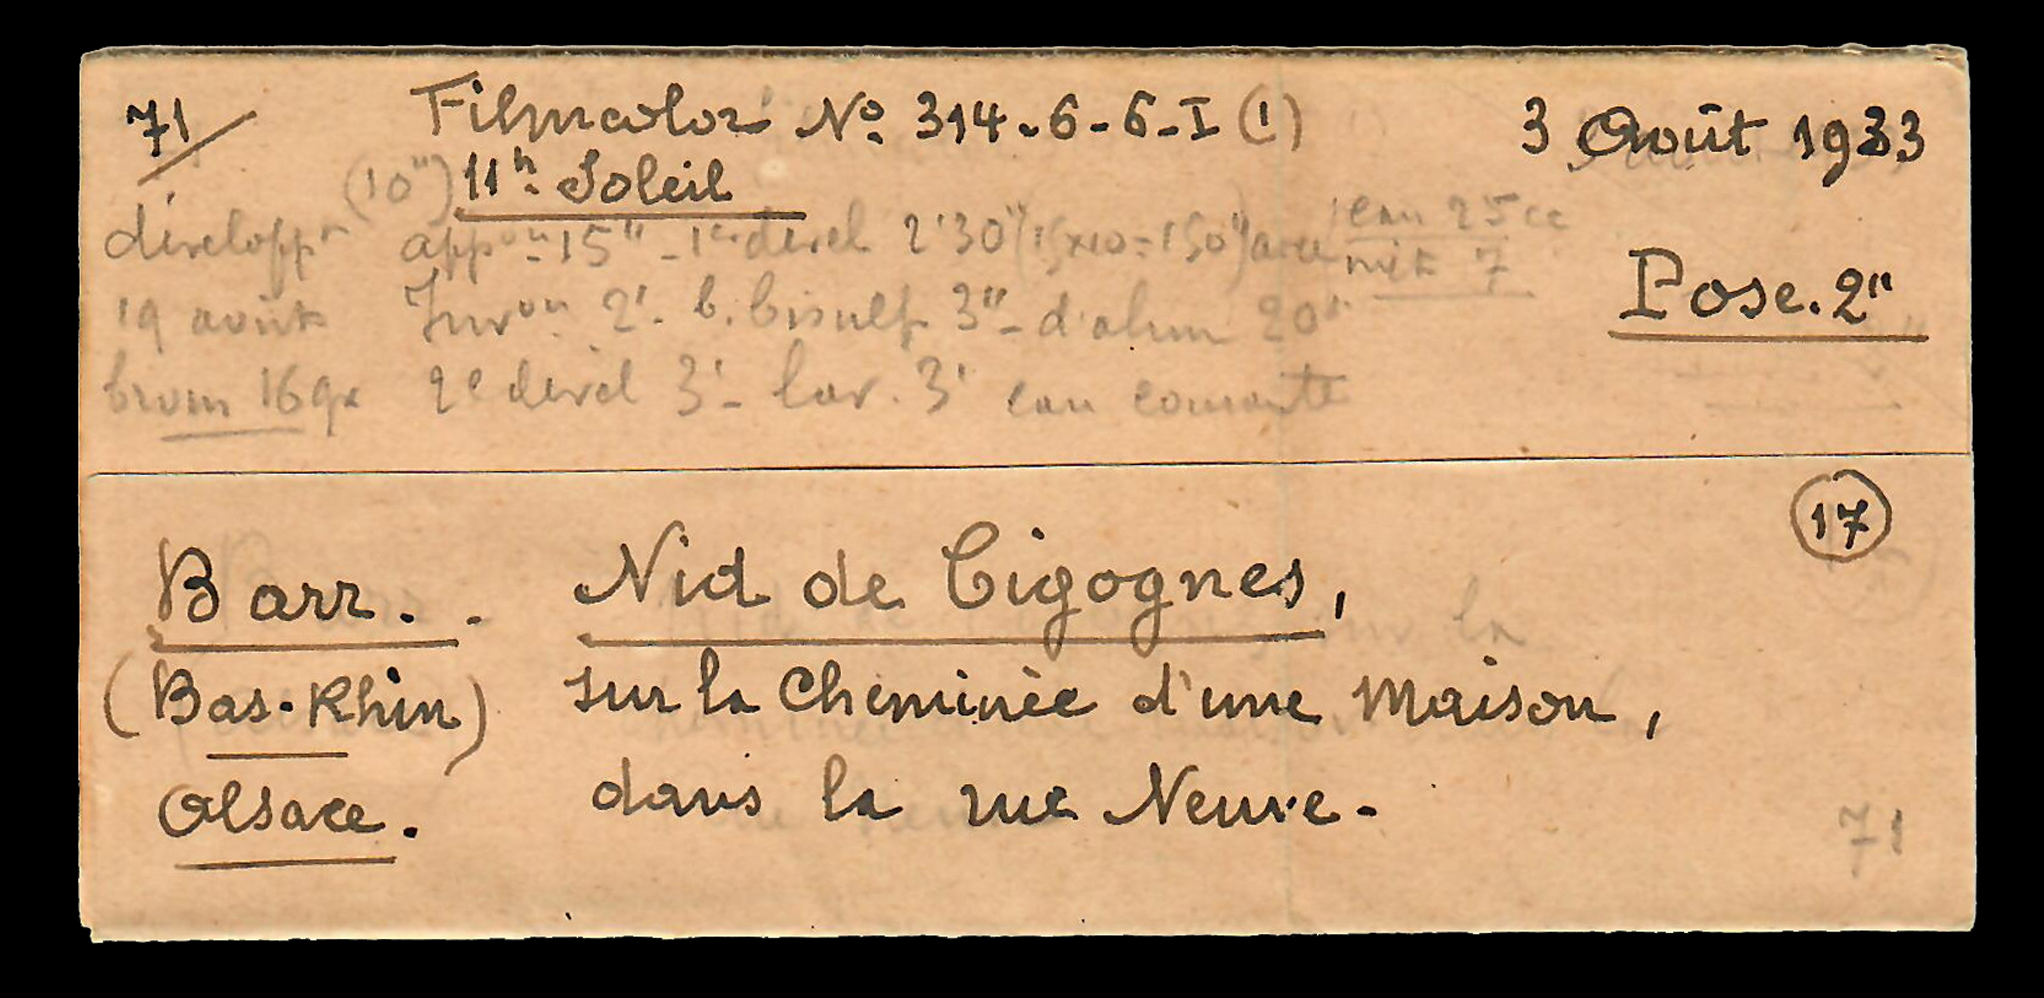 71 Filmcolor No. 314-6-6-I (1) 3 Août 1933
(10") 11h. Soleil
développt app on - 15" - 1er dével 2'30" (15x10=150") avec eau 25cc
mét 7
Pose. 2"
19 août Invon 2'. b. bisulf 3" - d'alun 20"
brom 16gx 2e dével 3' - lav. 3' eau courante
17
Barr. - Nid de Cigognes,
(Bas-Rhin) sur la Cheminée d'une Maison,
Alsace. dans la rue Neuve -
71